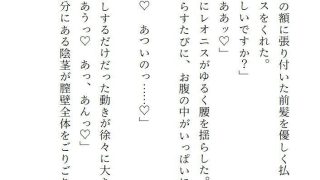 の額に張り付いた前髪を優しく払
スをくれた。
しいですか？」
ああッ♡」
にレオニスがゆるく腰を揺らした。
らすたびに、お腹の中がいっぱいに
♡　あついのっ……♡」
しするだけだった動きが徐々に大き
あうっ♡　あっ、あんっ♡」
分にある陰茎が膣壁全体をごりごり